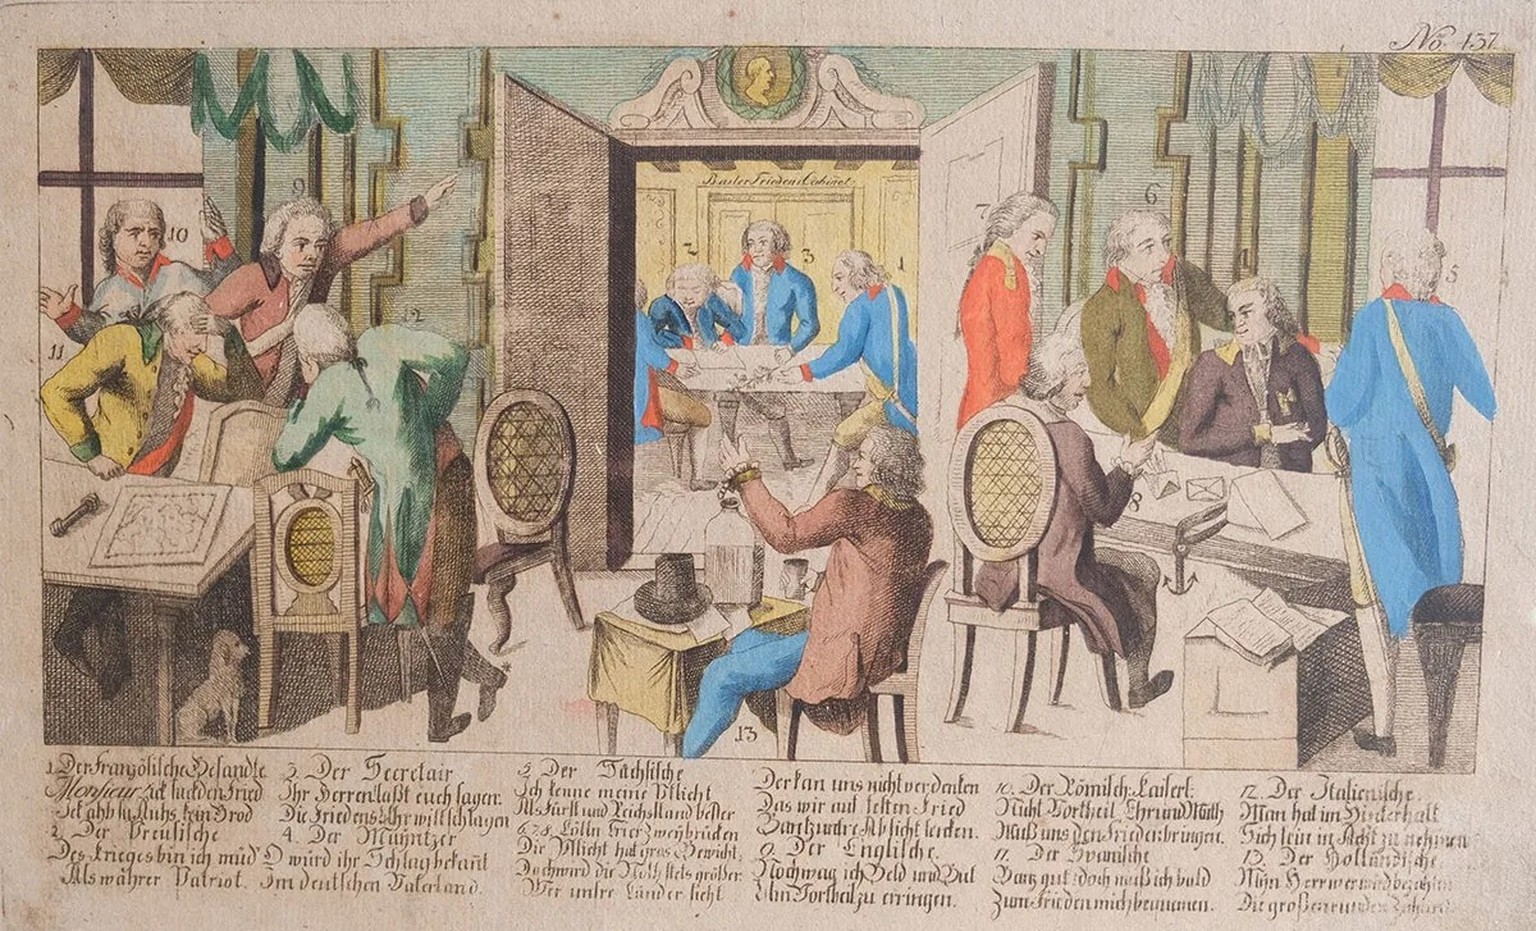 No. 137
Basler Friedens Cabinet
9
10
2
3
1
7
6
4
5
11
12
8
13
1. Der Französische Gesandte
Monsieur! ick suck den Fried
Ick ahb ku Auhs kein Brod
2. Der Preusische
Des Krieges bin ich müd'
Als wahrer Patriot.
3. Der Secretair
Ihr Herren laßt euch sagen:
Die Friedens Uhr will schlagen
4. Der Mayntzer
O würd ihr Schlag bekant
Im deutschen Vaterland.
5. Der Sächsische
Ich kenne meine Pflicht
Als Fürst und Reichsstand besser
6. 7. 8. Cölln Trier Zweybrücken
Die Pflicht hat gros Gewicht,
Doch ward die Noth stets größer
Wer unsre Länder sieht
Der kan uns nicht verdenken
Das wir auf festen Fried
Gantz unsre Absicht lenken.
9. Der Englische.
Noch wag ich Geld und Gut
Um Vortheil zu erringen.
10. Der Römisch: Kaiserl:
Nicht Vortheil, Ehr und Muth
Muß uns den Frieden bringen.
11. Der Spanische
Gantz gut! doch muß ich bald
Zum Frieden mich bequemen.
12. Der Italienische.
Man hat im Hinterhalt
Sich fein in Acht zu nehmen
13. Der Holländische.
Mÿn Herr wer wird bezahlen
Die großen runden